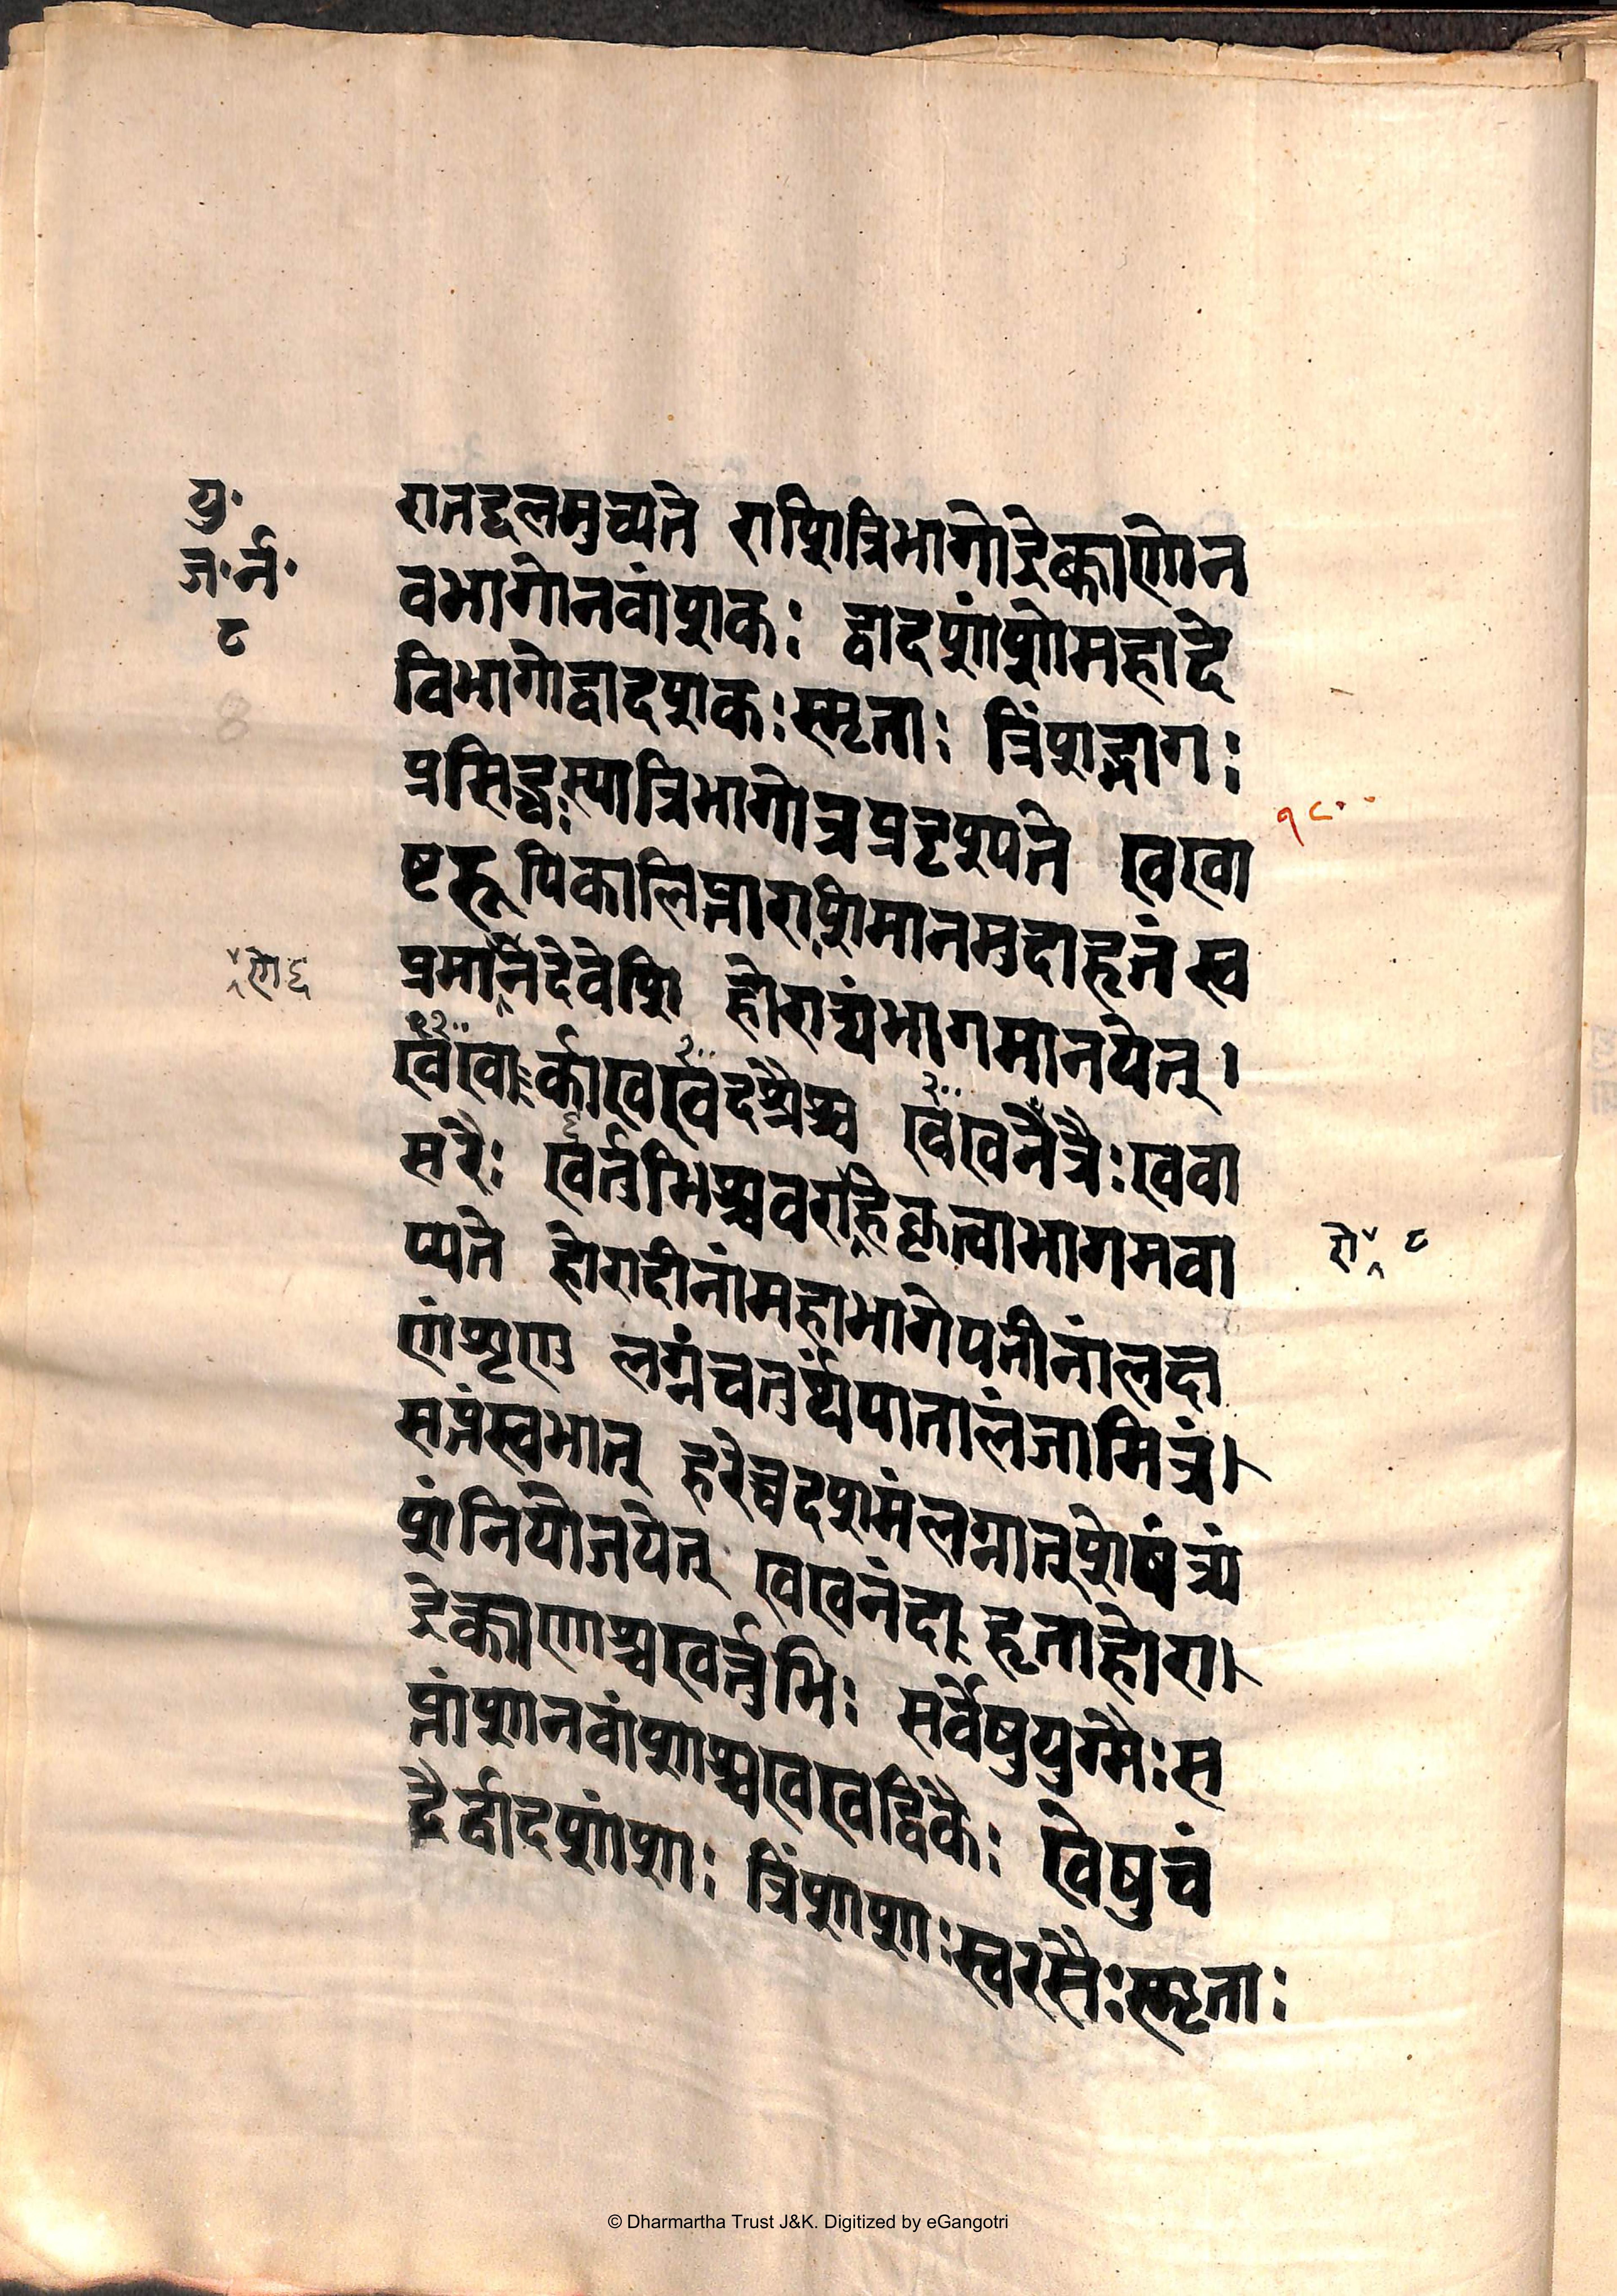 यु॰
ज॰र्न॰
८
8
रातद्दलमुच्यते राशित्रिभागोद्रेक्काणोन
वभागोनवांशकः द्वादशांशोमहादे
विभागोद्वादशकःस्मृताः त्रिंशद्भागः
प्रसिद्धःस्यात्रिभागोत्रप्रदृश्यते खखा
१८००
ष्टरूपिकालिप्ताराशिमानमुदाहृतं स्व
प्रमानैदेवेशि होराद्यंभागमानयेत् ।
णे ६
१२००
खखार्काखखदशैश्च खखनेत्रैःखवा
सरैः खर्तुभिश्चवराहेकृत्वाभागमवा
रो ८
प्यते होरादीनांमहाभागेपतीनांलक्ष
णंशृणु लग्नंचतुर्थंपातालंजामित्रं।
सप्तंस्वभात् हरेच्चदशमंलग्नात्शेषंत्र्यं
शंनियोजयेत् खखनंदाहृताहोरा।
द्रेक्काणश्चखर्त्तुभिः सर्वेषुयुग्मैःस
प्तांशनवांशाश्चखखद्विकैः खेषुचं
द्रैर्द्वादशांशाः त्रिंशाशाःस्वरसैःस्मृताः
© Dharmartha Trust J&K. Digitized by eGangotri